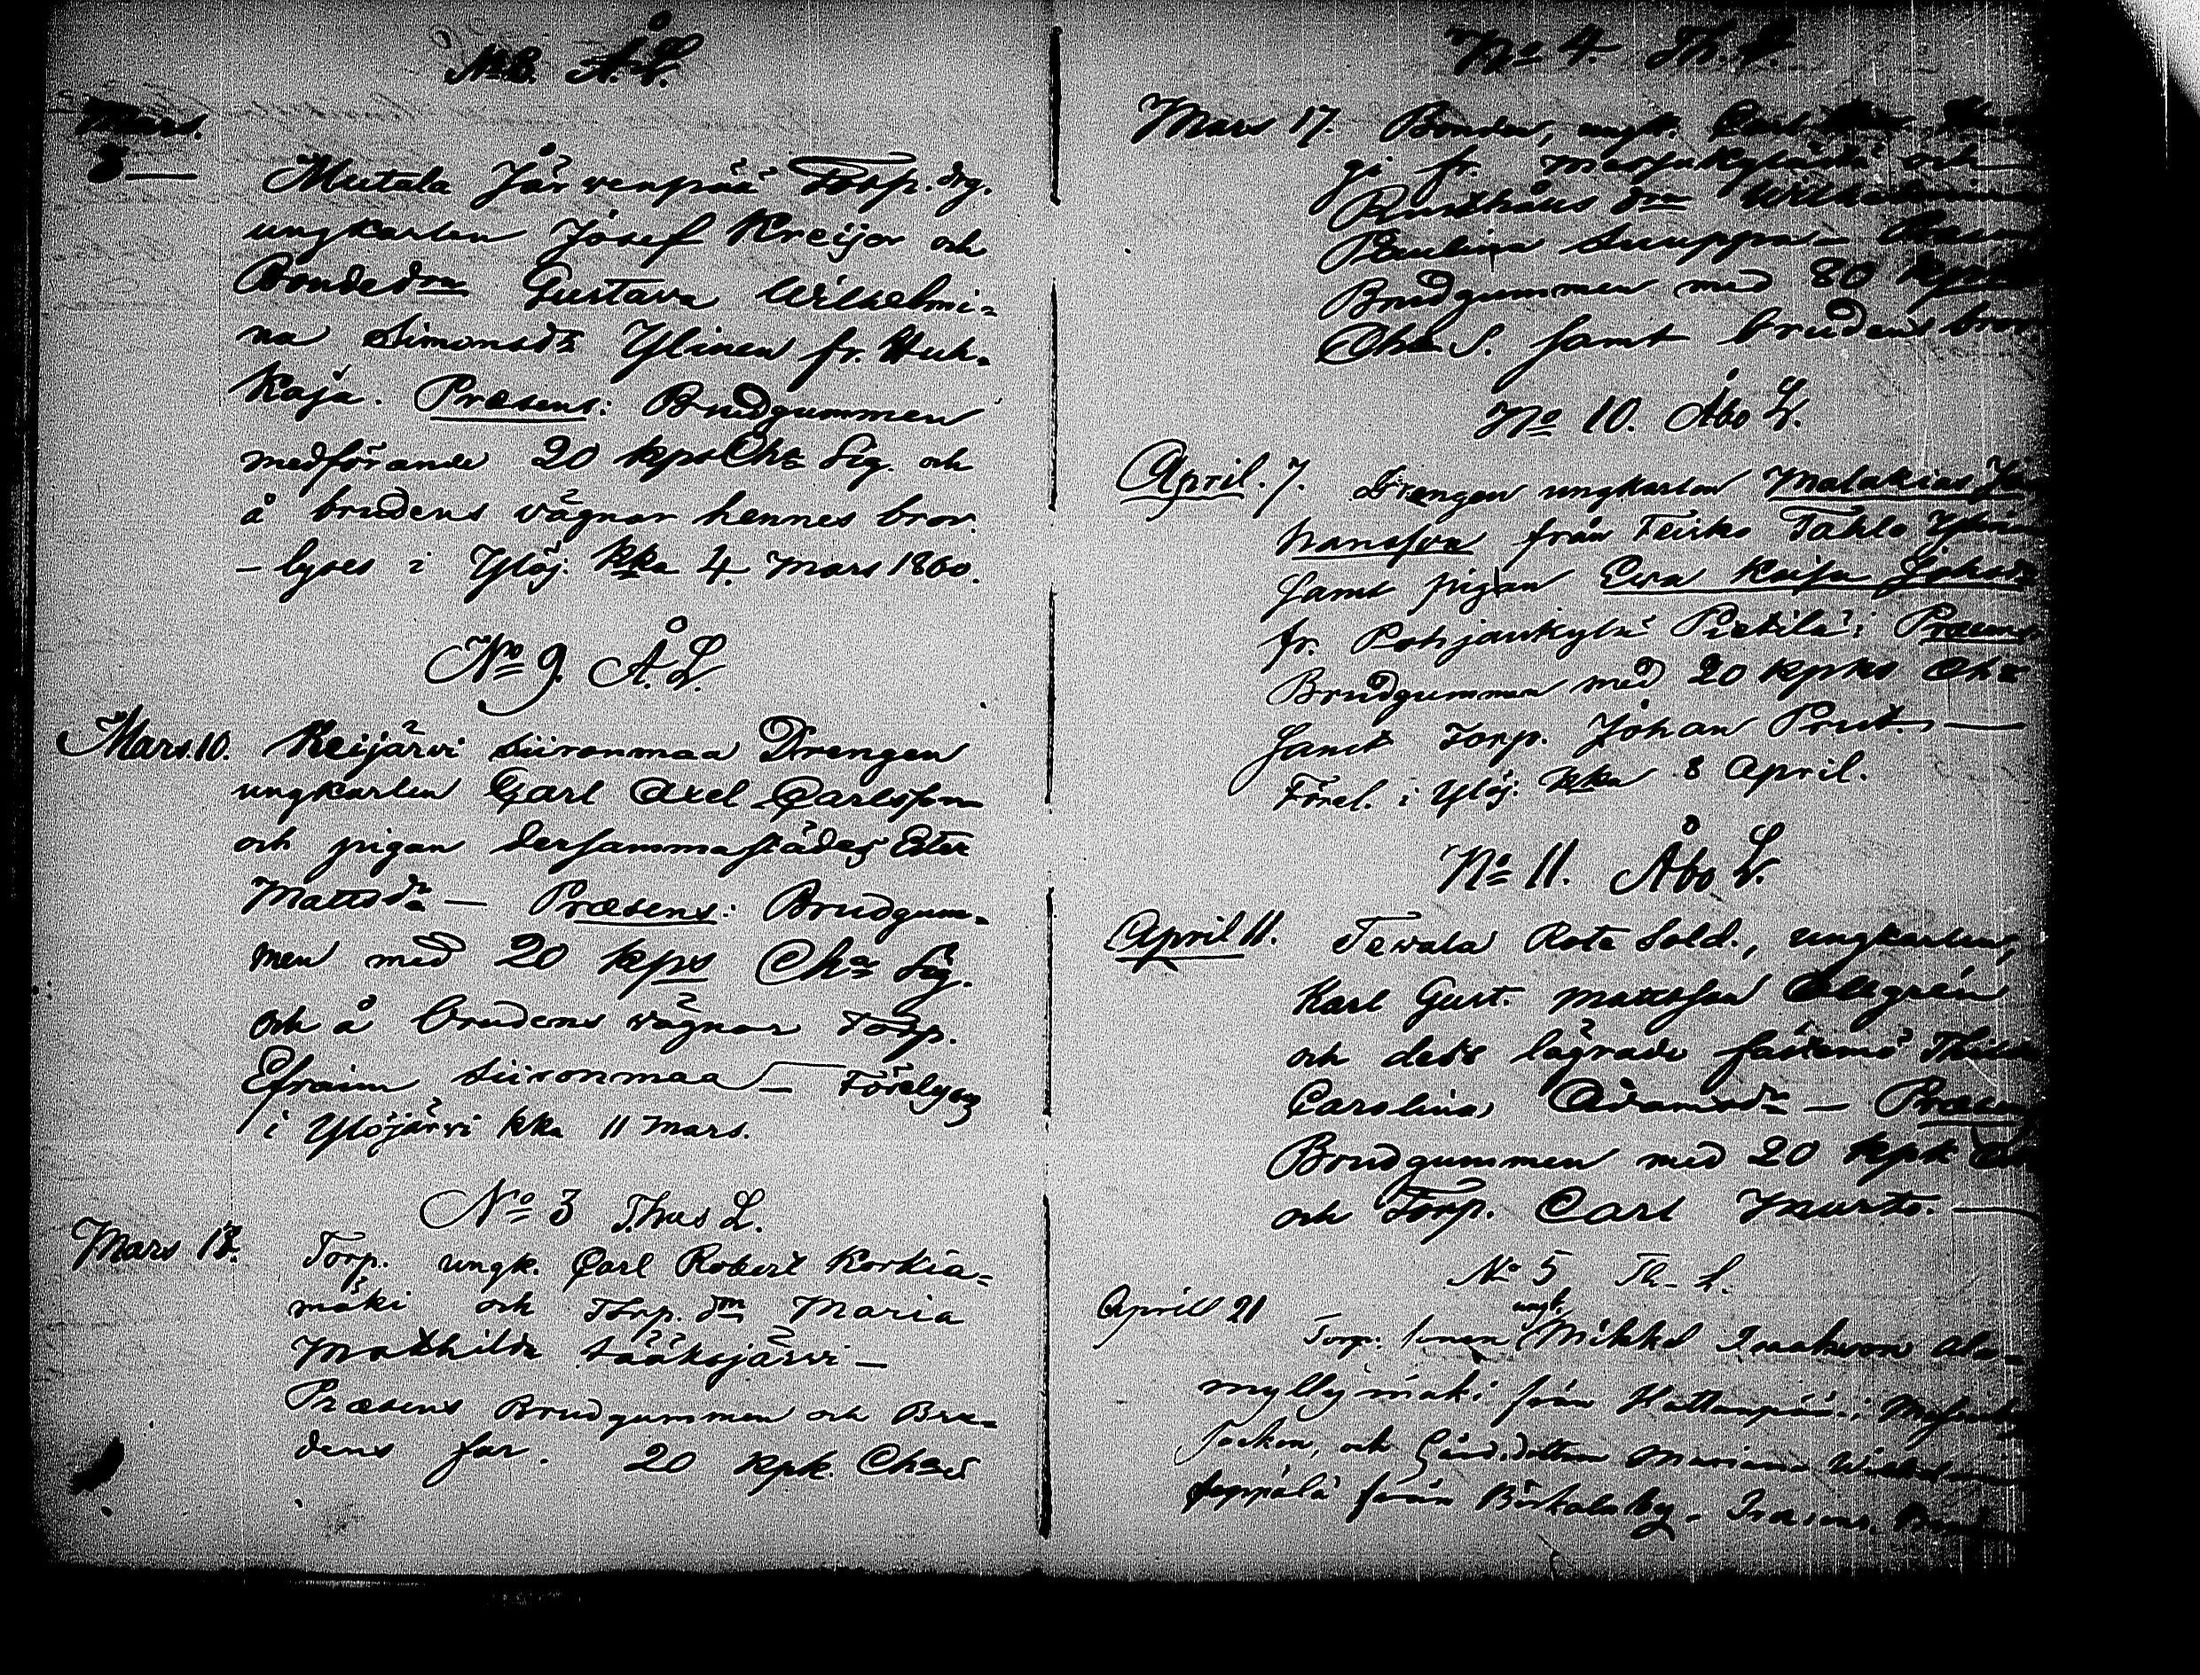 No 8. Å. L.
Mars.
8 — Mutala Järvenpää Torp. drg.
ungkarlen Josef Kreijor och
Bondedrn Gustava Wilhelmi=
na Simonsdr Ylinen fr. Huh=
kaja. Præsens: Brudgummen
medförande 20 kps Cha Sig. och
å brudens vägnar hennes bror.
– lyses i Ylöj. kka 4. Mars 1860.
No 9. Å. L.
Mars. 10. Keijärvi Siironmaa Drengen
ungkarlen Carl Axel Carlsson
och pigan dersammastädes Ester
Mattsdr — Præsens: Brudgum=
men med 20 kps Cha Sig.
och å brudens vägnar Torp.
Efraim Siironmaa — Förelyses
i Ylöjärvi kka 11 Mars.
No 3 Thus L.
Mars 17. Torp. ungk. Carl Robert Korkia=
mäki och Torp. drn Maria
Mathilda Sääksjärvi —
Præsens Brudgummen och Bru=
dens far. 20 kpk. Chas
No 4. Th. L.
Mars 17. Bonden, ungk. Carl
gi fr. och
Rusthålls drn Wilhelmina
Paulina Suuppa —
Brudgummen med 20
Cha S. samt brudens bror
No 10. Åbo L.
April. 7. Drengen ungkarlen Malakias
hansson från Teivo Tahlo
samt pigan Eva Kaisa
fr. Pohjankylä Pietilä: Præsens
Brudgummen med 20 kpks Cha
samt Torp. Johan Prut. —
Förel. i Ylöj. kka 8 April.
No 11. Åbo L.
April 11. Tevala Rote Sold., ungkarlen,
Karl Gust. Mattsson
och dess lägrade fästemö
Carolina Adamsdr — Præsens
Brudgummen med 20 kpk
och Torp. Carl Murto. —
No 5 Th. L.
April 21 Torp. sonen ungk. Mikkel Isaksson Ala=
myllymäki från Hattanpää i
Socken, och Gårds.dottren Maria
Seppälä från Birkala by.